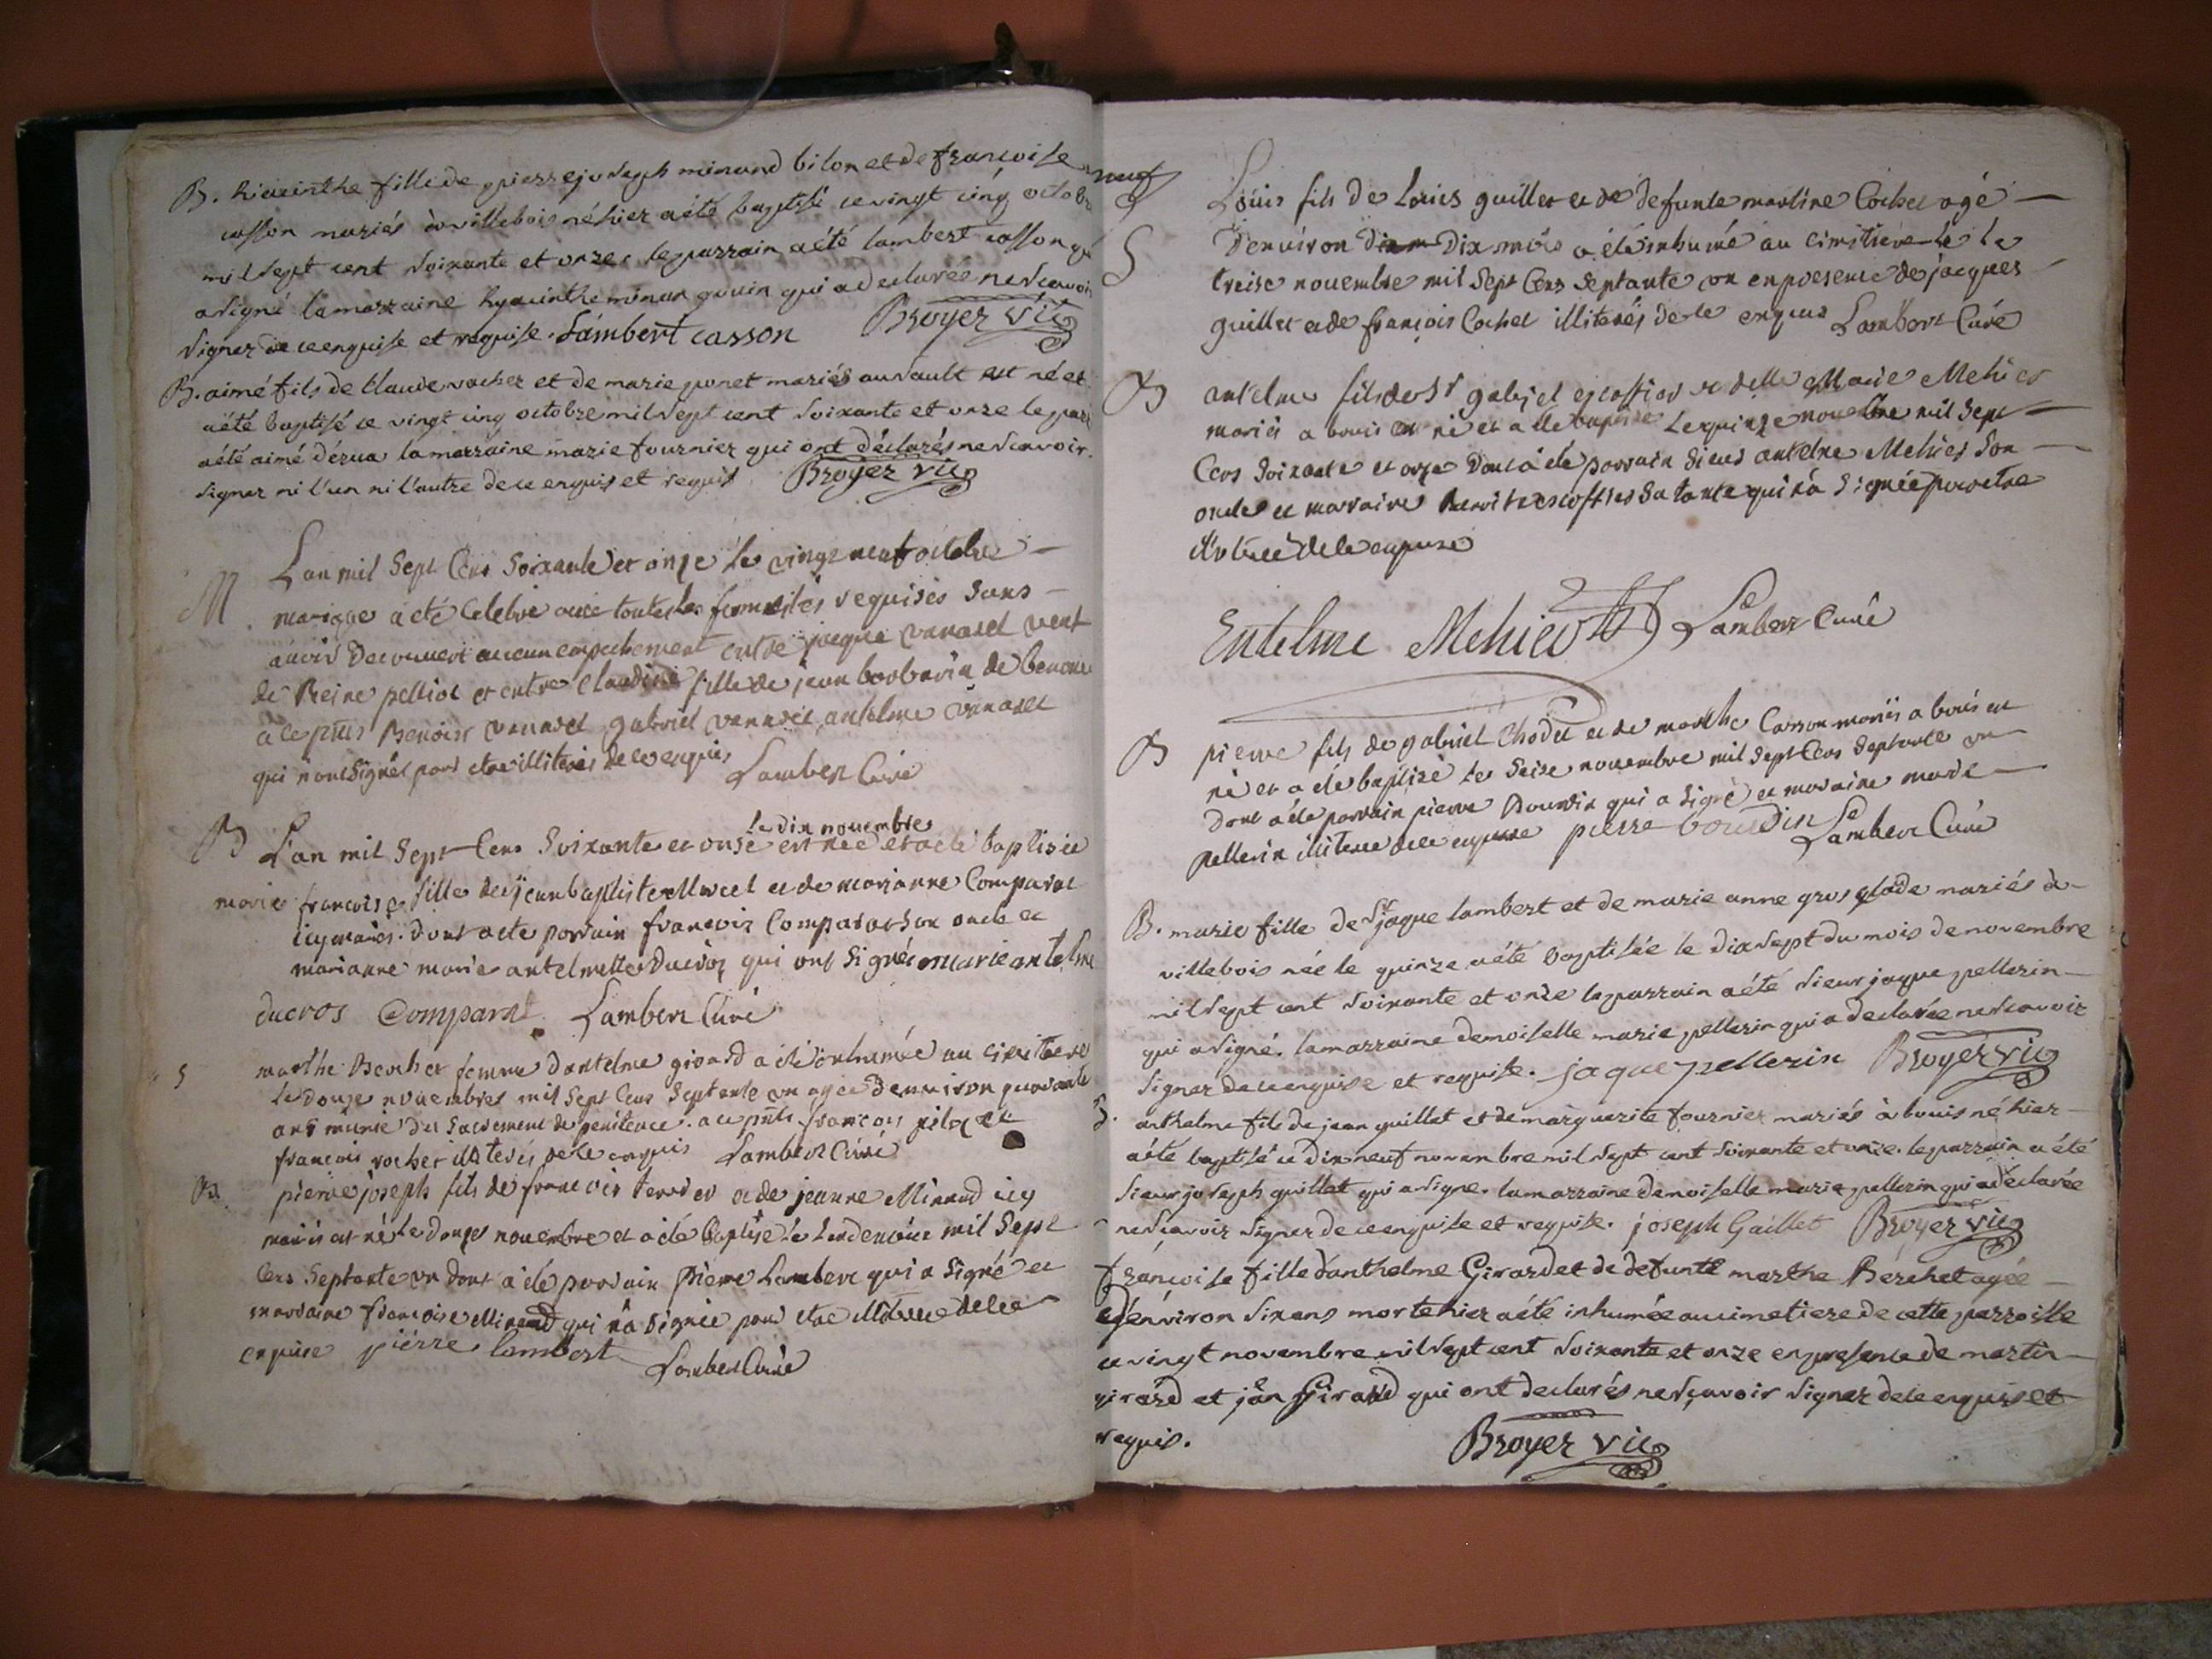 B. hiacinthe fille de pierre joseph minand bilon et de francoise
casson mariés à villebois né hier a été baptisé ce vingt cinq octobre
mil sept cent soixante et onze. le parrain a été lambert casson qui
a signé la marraine hyacinthe minan qui a declarée ne scavoir
signer de ce enquise et requise. Lambert casson Broyer vic
B. aimé fils de Claude vacher et de marie ponet mariés au sault est né et
a été baptisé ce vingt cinq octobre mil sept cent soixante et onze le parrain
a été aimé dérua la marraine marie fournier qui ont déclarés ne scavoir
signer ni l'un ni l'autre de ce enquis et requis Broyer vic
M L'an mil Sept Cens Soixante et onze le vingt neuf octobre
mariage a été Celebré avec toutes les formalités requises sans
avoir decouvert aucun empechement entre jacque vanarel veuf
de Reine pelliod et entre Claudine fille de jean barbarin de
à ce pnts Benoist vanarel gabriel vanarel antelme vanarel
qui n'ont signés pour etre illiterés de ce enquis Lambert Curé
le dix novembre
B L'an mil Sept Cens Soixante et onse est née et a été baptisée
marie francoise fille de jean baptiste Marcel et de marianne Comparat
icy mariés. dont a eté parrain francois Comparat son oncle et
marianne marie antelmette Ducros qui ont signés marie antelme
ducros Comparat Lambert Curé
S marthe Berchet femme d'antelme girard a été inhumée au cimitiere
le douze novembre mil Sept Cens Septante un agée d'environ quarante
ans munie du Sacrement de penitence. a ce pnts francois pilod et
francois rocher illiterés de ce enquis Lambert Curé
B pierre joseph fils de francois terrier et de jeanne Minand icy
mariés est né le douze novembre et a été baptisé le lendemain mil Sept
Cens Septante un dont a été parrain pierre Lambert qui a Signé et
marraine francoise Minand qui n'a signée pour etre illiteree de ce
enquise pierre lambert Lambert Curé
neuf
S Louis fils de Louis guillet et de defunte martine Cochet agé
d'environ dix mois a été inhumé au cimitiere le
treise novembre mil Sept Cens Septante un en presence de jacques
guillet et de francois Cochet illiterés de ce enquis Lambert Curé
B antelme fils de Sr gabriel escoffier et delle Marie Mehier
mariés a bouis est né et a été baptisé le quinze novembre mil Sept
Cens Soixante et onze dont a été parrain Sieur antelme Mehier Son
oncle et marraine Benoite escoffier Sa tante qui n'a Signée pour etre
illiteree de ce enquise
Entelme Mehier Lambert Curé
B pierre fils de gabriel Chodet et de marthe Casson mariés a bouis est
né et a été baptisé le Seise novembre mil Sept Cens Septante un
dont a été parrain pierre Bourdin qui a Signé et maraine marie
pellerin illiteree de ce enquise pierre bourdin Lambert Curé
B. marie fille de Sr jaque lambert et de marie anne gros glode mariés à
villebois née le quinze a été baptisée le dix sept du mois de novembre
mil sept cent soixante et onze le parrain a été sieur jaque pellerin
qui a signé. la marraine demoiselle marie pellerin qui a declarée ne scavoir
signer de ce enquise et requise. jaque pellerin Broyer vic
B. anthelme fils de jean guillet et de marguerite fournier mariés à bouis né hier
a été baptisé ce dix neuf novembre mil sept cent soixante et onze. le parrain a été
sieur joseph guillet qui a signé. la marraine demoiselle marie pellerin qui a déclarée
ne scavoir signer de ce enquise et requise. joseph Gaillet Broyer vic
françoise fille d'anthelme Girard et de defunte marthe Berchet agée
d'environ six ans morte hier a été inhumée au cimetiere de cette parroisse
ce vingt novembre mil sept cent soixante et onze en presence de martin
girard et jean Girard qui ont declarés ne sçavoir signer de ce enquis et
requis. Broyer vic